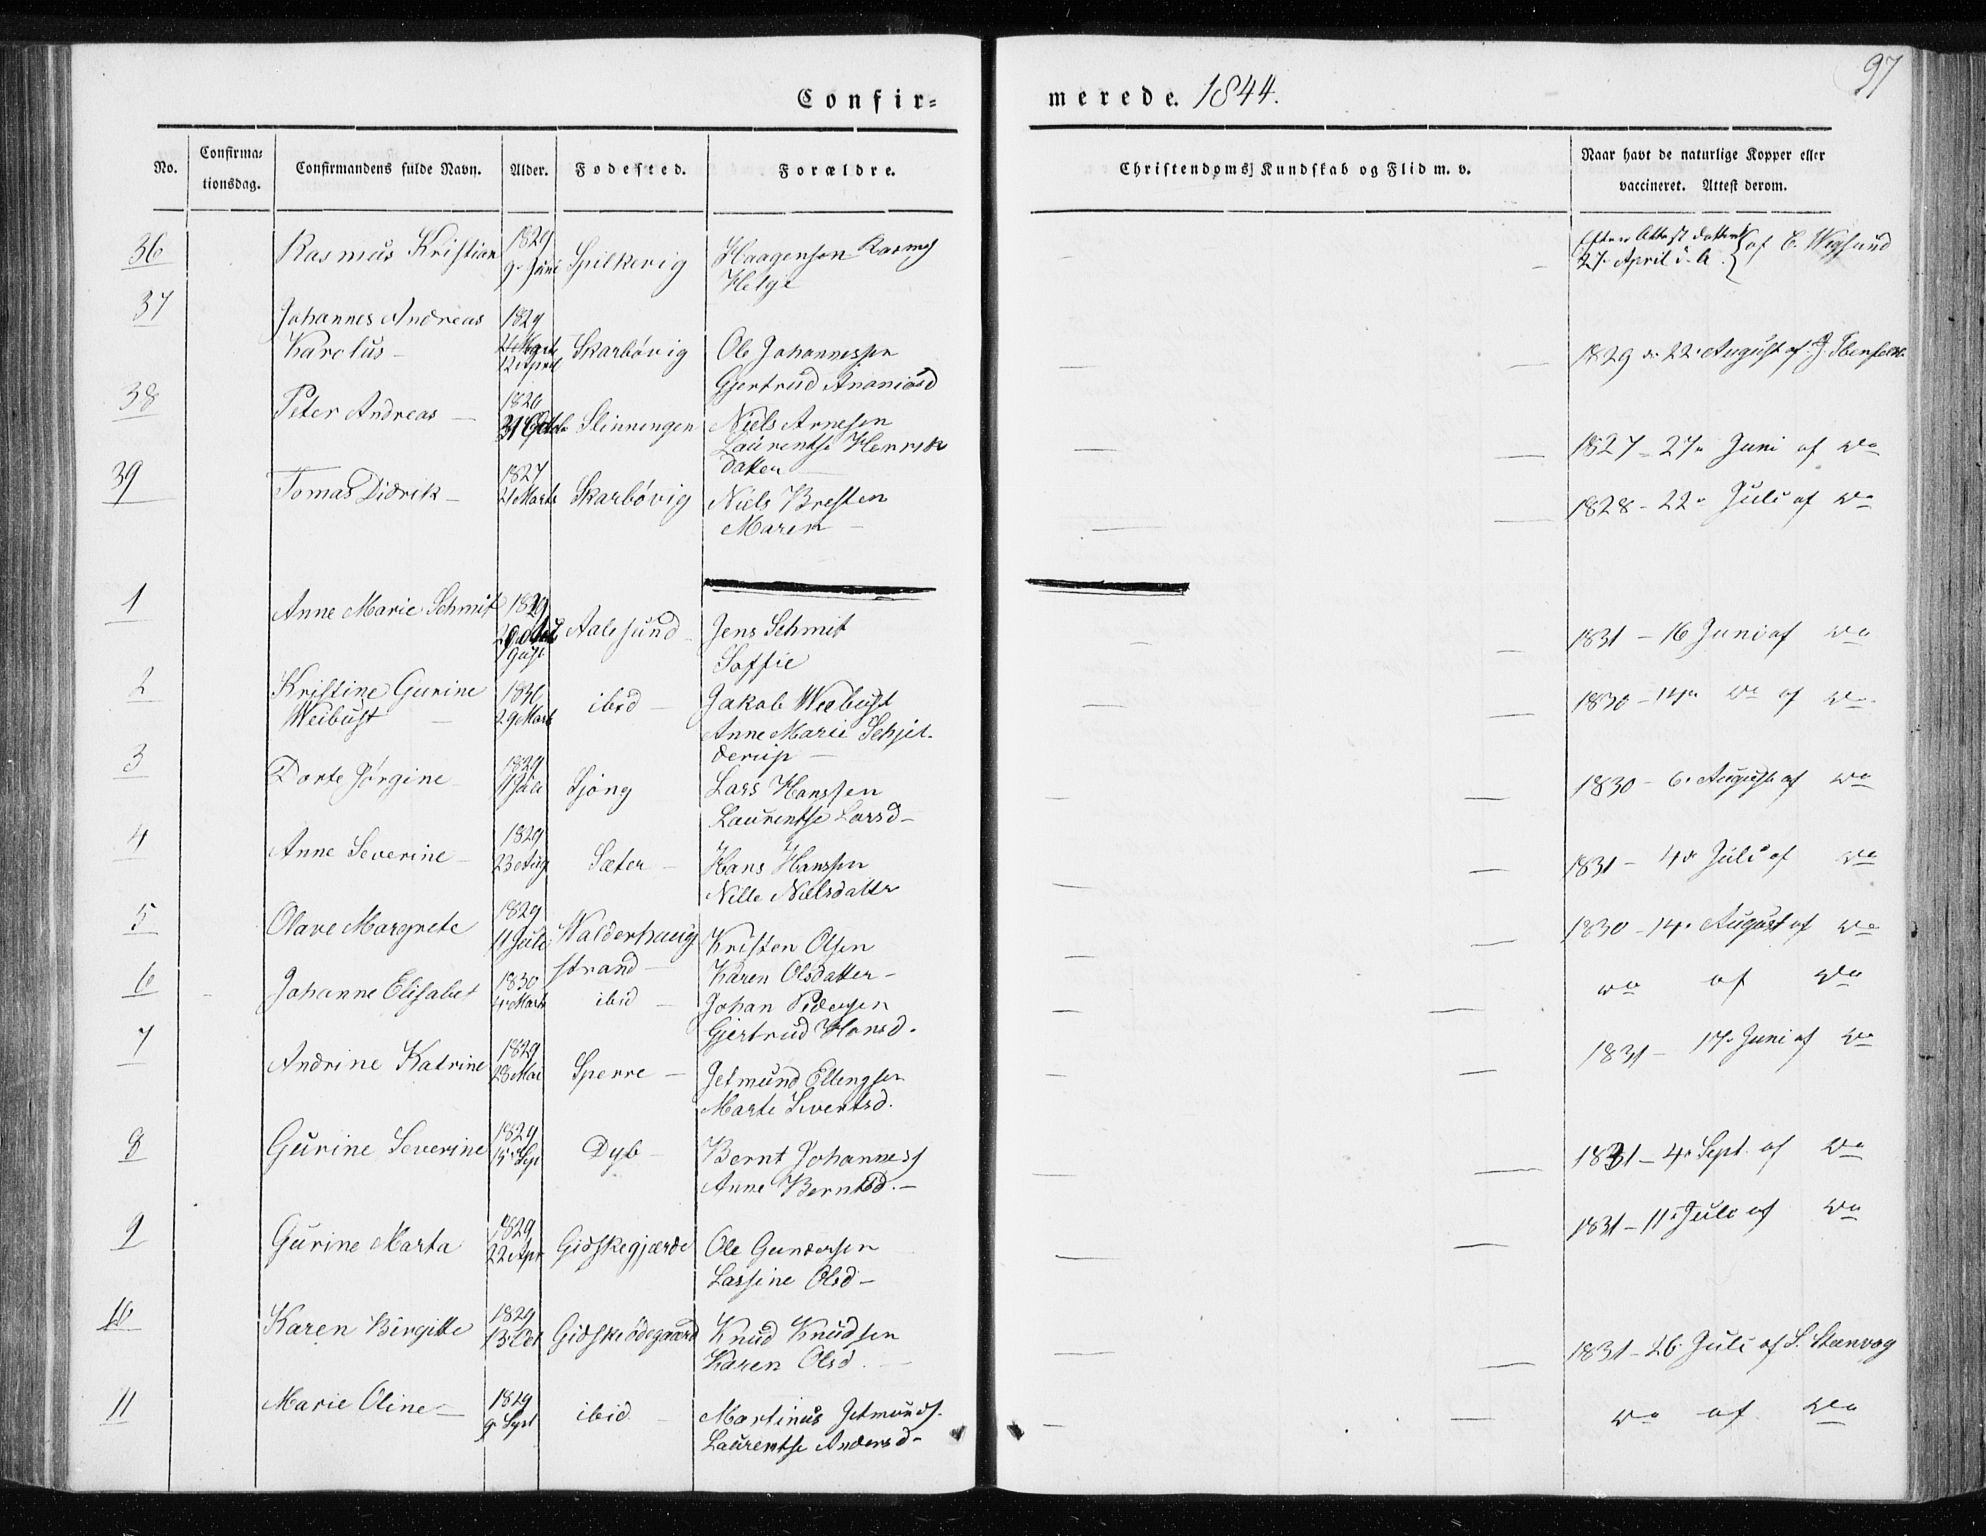 Confir-
merede. 1844.
97
No.
Confirma-
tionsdag.
Confirmandens fulde Navn.
Alder.
Fødested.
Forældre.
Christendoms Kundskab og Flid m. v.
Naar havt de naturlige Kopper eller
vaccineret. Attest derom.
36 Rasmus Kristian 1829 9 Juni Spilkevig Haagensen Rasmus
Helge
Efter Attest datteret
27 April d. A. af C. Wegsund
37 Johannes Andreas 1829
Karolus 12 April Skarbøvig Ole Johannessen
Gjertrud Ananiasd
1829 d. 22 August af J. Ibenfeldt
38 Peter Andreas — Slinningen Niels Arnesen
Laurentse Henrik
datter
1827 - 27 Juni af do
39 Tomas Didrik — 1827 21 Marts Skarbøvig Niels Bresten
Maren —
1828 - 22 Juli af do
1 Anne Marie Schmit 1829 Aalesund Jens Schmit
Soffie
1831 - 16 Juni af do
2 Kristine Gurine 1830 ibid — Jakob Weibust
Weibust — 29 Mart Anne Marie Schjel-
derup —
1830 - 14 do af do
3 Dorte Jørgine 1829 11 Juli Sjong Lars Hanssen
Laurentse Larsd —
1830 - 6 August af do
4 Anne Severine — 1829 23 Aug Sæter — Hans Hanssen
Nille Nielsdatter
1831 - 4 Juli af do
5 Olave Margrete 1829 11 Juli Walderhaug Kristen Olsen
strand — Karen Olsdatter —
1830 - 14 August af do
6 Johanne Elisabet 1830 4 Marts ibid — Johan Pedersen
Gjertrud Hansd.
do af do
7 Andrine Katrine 1829 28 Mai Sperre — Jetmund Ellingsen
Marte Sivertsd.
1831 - 17 Juni af do
8 Gurine Severine 1829 15 Sep Dyb — Bernt Johannes
Anne Berntsd. —
1831 - 4 Sept. af do
9 Gurine Marta 1829 22 Apr Gidskegjærde Ole Gundersen
Lassine Olsd —
1831 - 11 Juli af do
10 Karen Birgitte 1829 13 Oct Gidskeødegaard Knud Knudsen
Karen Olsd.
1831 - 26 Juli af S. Steenvog
11 Marie Oline — 1829 9 Sept ibid Martinus Jetmunds.
Laurentse Andersd —
do af do